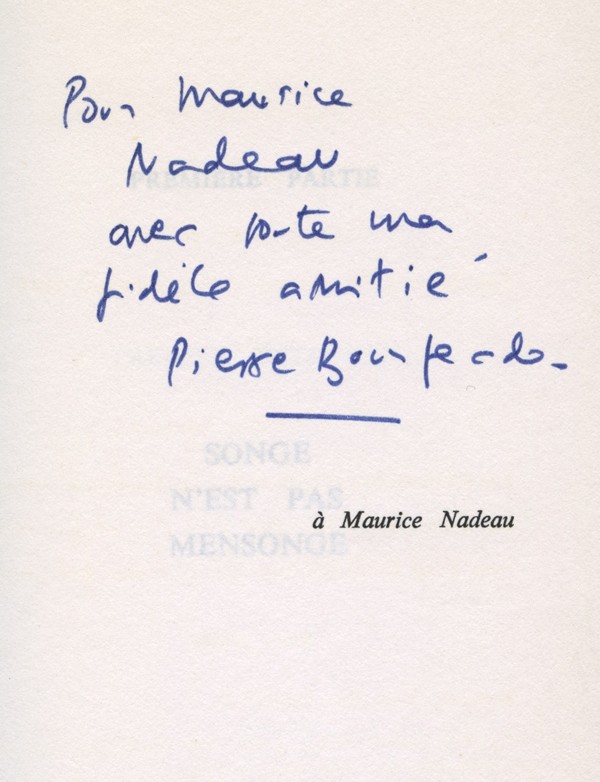 Pour Maurice
Nadeau
PREMIÈRE PARTIE
avec toute ma
fidèle amitié
Pierre Bourgeade.
SONGE
N'EST PAS
à Maurice Nadeau
MENSONGE